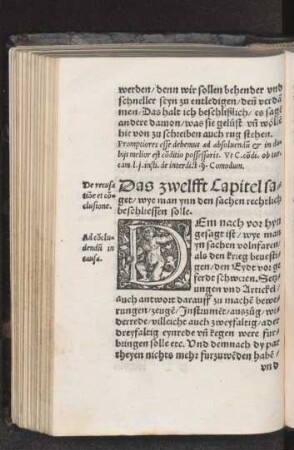 werden/ denn wir sollen behender vnd
schneller seyn zu entledigen/ deñ verdã
men/ Das halt ich beschlißlich/ es sagē
andere dauon/ was sie gelüst vñ wölle
hie von zu schreiben auch rug stehen.
Promptiores esse debemus ad absoluendũ & in du
bijs melior est cõditio possessoris. Vt C. cõdi. ob tur
cam l.j. insti. de interdict. §. Comodum.
De recusa
tiõe et cõ
clusione.
Das zwelfft Capitel sa/
get/ wye man ynn den sachen rechtlich
beschliessen solle.
Ad cõclu
dendũ in
causa.
DEm nach vor hyn
gesagt ist/ wye man
yn sachen volnfaren/
als den krieg beuesti/
gen/ den Eydt vor ge
ferde schweren. Setz/
ungen vnd Artickel/
auch antwort darauff zu machē bewe/
rungen/ zeugē/ Instrumēt/ auszüg/ wi/
derrede/ villeiche auch zweyfaltig/ ader
dreyfaltig eynrede vñ kegen were fur/
bringen solle etc. Vnd demnach dy par
theyen nichts mehr furzuwēden habē/
vnd